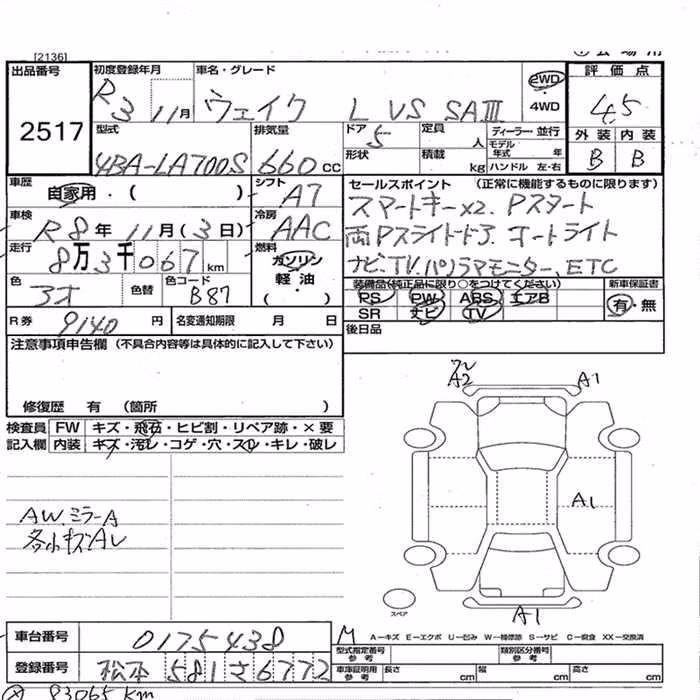 [2136]
出品番号 初度登録年月 車名・グレード 評価点
2517
R3 11月 ウェイク L VS SAⅢ 2WD・4WD 4.5
型式 排気量 ドア 定員 ディーラー 並行 外装 内装
4BA-LA700S 660cc 5 人 モデル年式 年 B B
形状 積載 kg ハンドル 左・右
車歴 シフト セールスポイント (正常に機能するものに限ります)
自家用・( ) A7 スマートキーx2. Pスタート
車検 冷房
R8年 11月(3日) AAC 両Pスライドドア. オートライト
走行 燃料
8万3千067km ガソリン 軽油 ・( ) ナビ.TV.パノラマモニター、ETC
色 色替 色コード 装備品(純正品に限り○をつけてください) 新車保証書
B87 PS PW ABS エアB 有・無
SR ナビ TV
R券 9140円 名変通知期限 月 日 後日品
注意事項申告欄 (不具合内容等は具体的に記入して下さい)
修復歴 有 (箇所 )
検査員 FW キズ・飛石・ヒビ割・リペア跡・×要
記入欄 内装 キズ・汚レ・コゲ・穴・スレ・キレ・破レ
A2 A1
A1
AW.ミラーA
各小キズ.AU
スペア
A1
車台番号 0175438
A―キズ E―エクボ U―凹み W―補修跡 S―サビ C―腐食 XX―交換済
型式指定番号 参考 類別区分番号 参考
登録番号 松本 581 さ 6772 車庫証明用 参考 長さ cm 幅 cm 高さ cm
83065 km